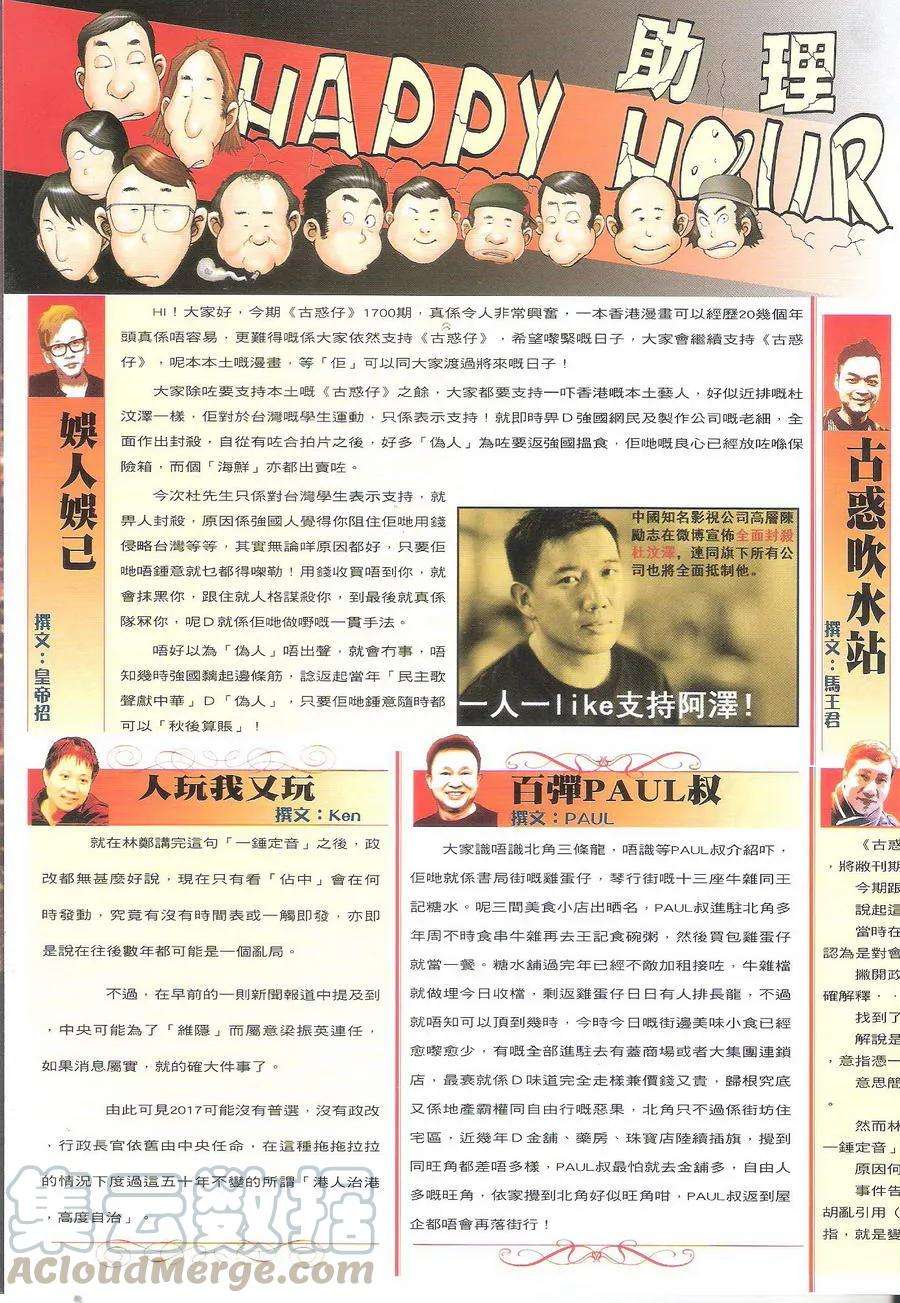 HAPPY
助理
HOUR
娛人娛己
撰文：皇帝招
HI！大家好，今期《古惑仔》1700期，真係令人非常興奮，一本香港漫畫可以經歷20幾個年
頭真係唔容易，更難得嘅係大家依然支持《古惑仔》，希望嚟緊嘅日子，大家會繼續支持《古惑
仔》，呢本本土嘅漫畫，等「佢」可以同大家渡過將來嘅日子！
大家除咗要支持本土嘅《古惑仔》之餘，大家都要支持一吓香港嘅本土藝人，好似近排嘅杜
汶澤一樣，佢對於台灣嘅學生運動，只係表示支持！就即時畀D強國網民及製作公司嘅老細，全
面作出封殺，自從有咗合拍片之後，好多「偽人」為咗要返強國搵食，佢哋嘅良心已經放咗喺保
險箱，而個「海鮮」亦都出賣咗。
今次杜先生只係對台灣學生表示支持，就
畀人封殺，原因係強國人覺得你阻住佢哋用錢
侵略台灣等等，其實無論咩原因都好，只要佢
哋唔鍾意就乜都得㗎勒！用錢收買唔到你，就
會抹黑你，跟住就人格謀殺你，到最後就真係
隊冧你，呢D就係佢哋做嘢嘅一貫手法。
唔好以為「偽人」唔出聲，就會冇事，唔
知幾時強國黐起邊條筋，諗返起當年「民主歌
聲獻中華」D「偽人」，只要佢哋鍾意隨時都
可以「秋後算賬」！
中國知名影視公司高層陳
勵志在微博宣佈全面封殺
杜汶澤，連同旗下所有公
司也將全面抵制他。
一人一like支持阿澤！
古惑吹水站
撰文：馬王君
人玩我又玩
撰文：Ken
就在林鄭講完這句「一錘定音」之後，政
改都無甚麼好說，現在只有看「佔中」會在何
時發動，究竟有沒有時間表或一觸即發，亦即
是說在往後數年都可能是一個亂局。
不過，在早前的一則新聞報道中提及到
，中央可能為了「維隱」而屬意梁振英連任，
如果消息屬實，就的確大件事了。
由此可見2017可能沒有普選，沒有政改
，行政長官依舊由中央任命，在這種拖拖拉拉
的情況下度過這五十年不變的所謂「港人治港
，高度自治」。
百彈PAUL叔
撰文：PAUL
大家識唔識北角三條龍，唔識等PAUL叔介紹吓，
佢哋就係書局街嘅雞蛋仔，琴行街嘅十三座牛雜同王
記糖水。呢三間美食小店出晒名，PAUL叔進駐北角多
年周不時食串牛雜再去王記食碗粥，然後買包雞蛋仔
就當一餐。糖水舖過完年已經不敵加租接咗，牛雜檔
就做埋今日收檔，剩返雞蛋仔日日有人排長龍，不過
就唔知可以頂到幾時，今時今日嘅街邊美味小食已經
愈嚟愈少，有嘅全部進駐去有蓋商場或者大集團連鎖
店，最衰就係D味道完全走樣兼價錢又貴，歸根究底
又係地產霸權同自由行嘅惡果，北角只不過係街坊住
宅區，近幾年D金舖、藥房、珠寶店陸續插旗，攪到
同旺角都差唔多樣，PAUL叔最怕就去金舖多，自由人
多嘅旺角，依家攪到北角好似旺角咁，PAUL叔返到屋
企都唔會再落街行！
《古惑
，將敝刊期
今期跟
說起這
當時在
認為是對會
撇開政
確解釋．．
找到了
解說是
，意指憑一
意思簡
。
然而林
一錘定音」
原因何
事件告
胡亂引用（
指，就是變
集云数据
AcloudMerge.com